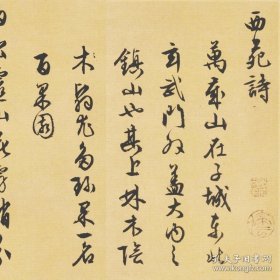 西苑詩
萬歲山在子城東北
玄武門外蓋大內之
鎮山也其上林木陰
翳尤多珍果一名
百果園
日出靈山花霧消分